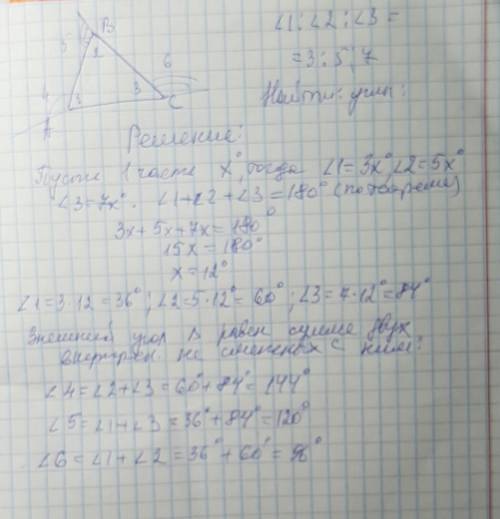 ∠1 : ∠2 : ∠3 =
= 3 : 5 : 7
Найти: углы:
B
5
2
6
4
1
3
C
A
Решение:
Пусть 1 часть x°, тогда ∠1 = 3x°, ∠2 = 5x°
∠3 = 7x°. ∠1 + ∠2 + ∠3 = 180° (по теореме)
3x + 5x + 7x = 180°
15x = 180°
x = 12°
∠1 = 3·12 = 36°; ∠2 = 5·12° = 60°; ∠3 = 7·12° = 84°
Внешний угол Δ равен сумме двух
внутрен. не смежных с ним:
∠4 = ∠2 + ∠3 = 60° + 84° = 144°
∠5 = ∠1 + ∠3 = 36° + 84° = 120°
∠6 = ∠1 + ∠2 = 36° + 60° = 96°